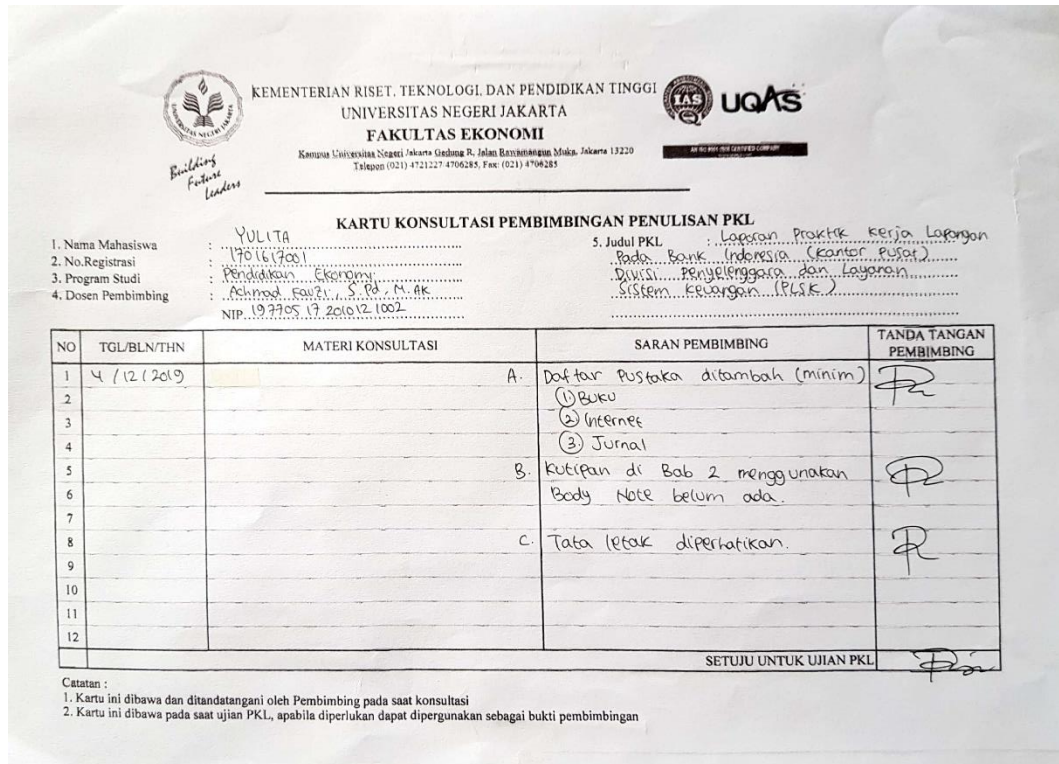 KEMENTERIAN RISET, TEKNOLOGI, DAN PENDIDIKAN TINGGI
UNIVERSITAS NEGERI JAKARTA
FAKULTAS EKONOMI
Kampus Universitas Negeri Jakarta Gedung R, Jalan Rawamangun Muka, Jakarta 13220
Telepon (021) 4721227/4706285, Fax: (021) 4706285
UNIVERSITAS NEGERI JAKARTA
Building
Future
Leaders
IAS
UQAS
AN ISO 9001:2008 CERTIFIED COMPANY
KARTU KONSULTASI PEMBIMBINGAN PENULISAN PKL
1. Nama Mahasiswa : YULITA
2. No.Registrasi : 1701617001
3. Program Studi : Pendidikan Ekonomi
4. Dosen Pembimbing : Achmad Fauzi, S.Pd, M.Ak
NIP. 19770517 201012 1002
5. Judul PKL : Laporan Praktik Kerja Lapangan
Pada Bank Indonesia (Kantor Pusat)
Divisi Penyelenggara dan Layanan
Sistem Keuangan (PLSK)
NO TGL/BLN/THN MATERI KONSULTASI SARAN PEMBIMBING TANDA TANGAN PEMBIMBING
1 4/12/2019 A. Daftar Pustaka ditambah (minim)
2 1. Buku
3 2. Internet
4 3. Jurnal
5 B. Kutipan di Bab 2 menggunakan
6 Body Note belum ada.
7
8 C. Tata letak diperhatikan.
9
10
11
12
SETUJU UNTUK UJIAN PKL
Catatan :
1. Kartu ini dibawa dan ditandatangani oleh Pembimbing pada saat konsultasi
2. Kartu ini dibawa pada saat ujian PKL, apabila diperlukan dapat dipergunakan sebagai bukti pembimbingan